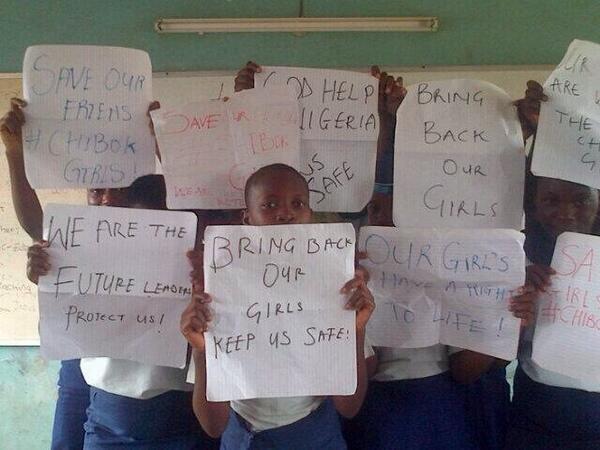 SAVE OUR
FRIENS
#CHIBOK
GIRLS!
SAVE
WE AR
IBOK
G
OD HELP
NIGERIA
US
SAFE
BRING
BACK
OUR
GIRLS
UR
ARE W
THE
CH
G
WE ARE THE
FUTURE LEADERS
PROTECT US!
BRING BACK
OUR
GIRLS
KEEP US SAFE!
OUR GIRL'S
HAVE A RIGHT
TO LIFE!
SA
GIRLS
#CHIBO